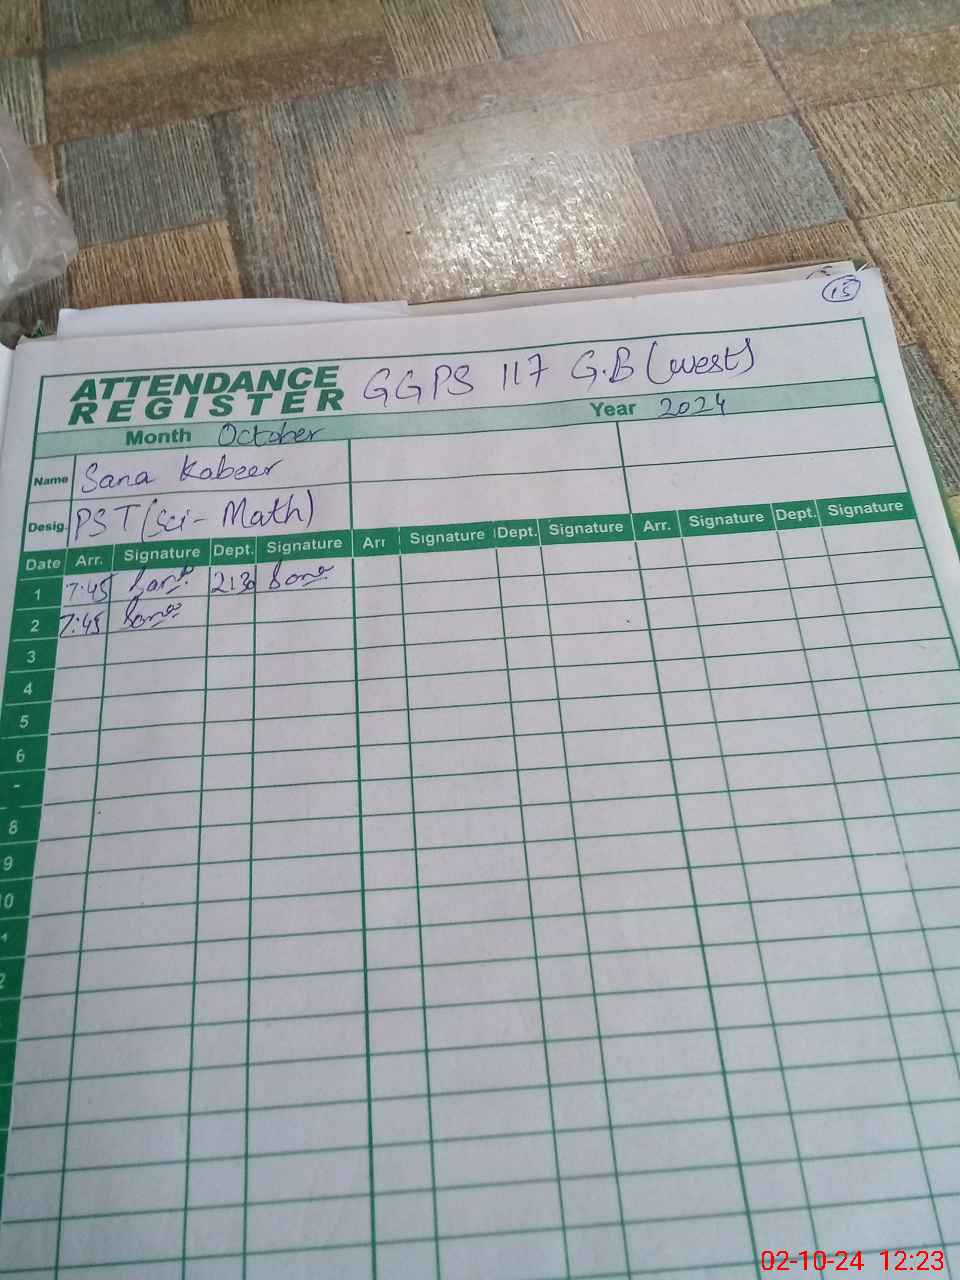 15
ATTENDANCE REGISTER GGPS 117 G.B (west)
Month October Year 2024
Name Sana Kabeer
Desig. PST (Sci - Math)
Date Arr. Signature Dept. Signature Arr Signature Dept. Signature Arr. Signature Dept. Signature
1 7:45 Sana 2:30 Sana
2 7:45 Sana
3
4
5
6
8
9
10
02-10-24 12:23